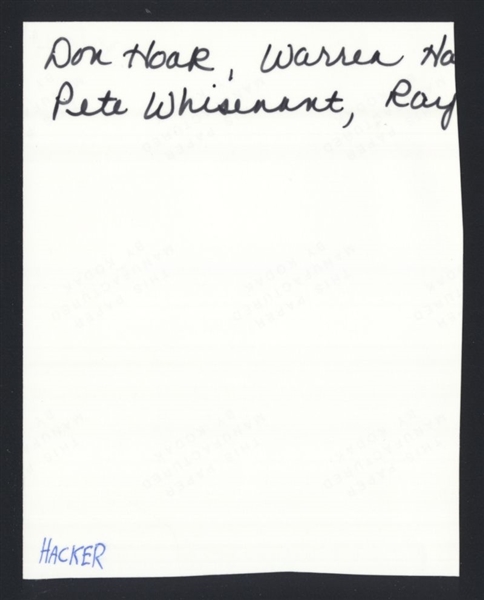 Don Hoak, Warren Ha
Pete Whisenant, Ray
HACKER